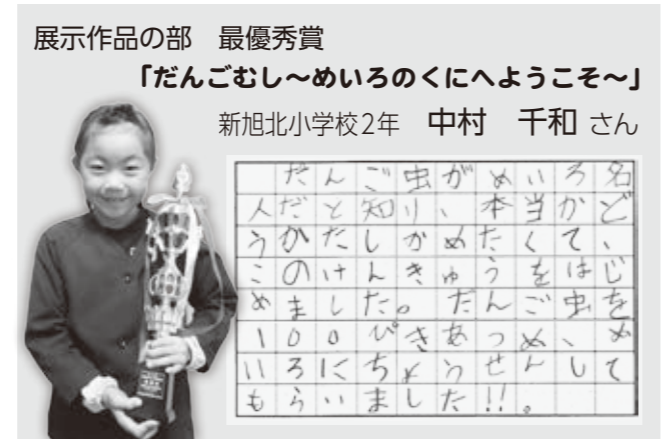 展示作品の部　最優秀賞
「だんごむし～めいろのくにへようこそ～」
新旭北小学校2年　中村　千和 さん
だんご虫がめいろ名
人だと知り、本当かど
うかたしかめたくて、
このけんきゅうをはじ
めました。だんご虫を
100ぴきあつめ、め
いろにちょうせんして
もらいました!!。